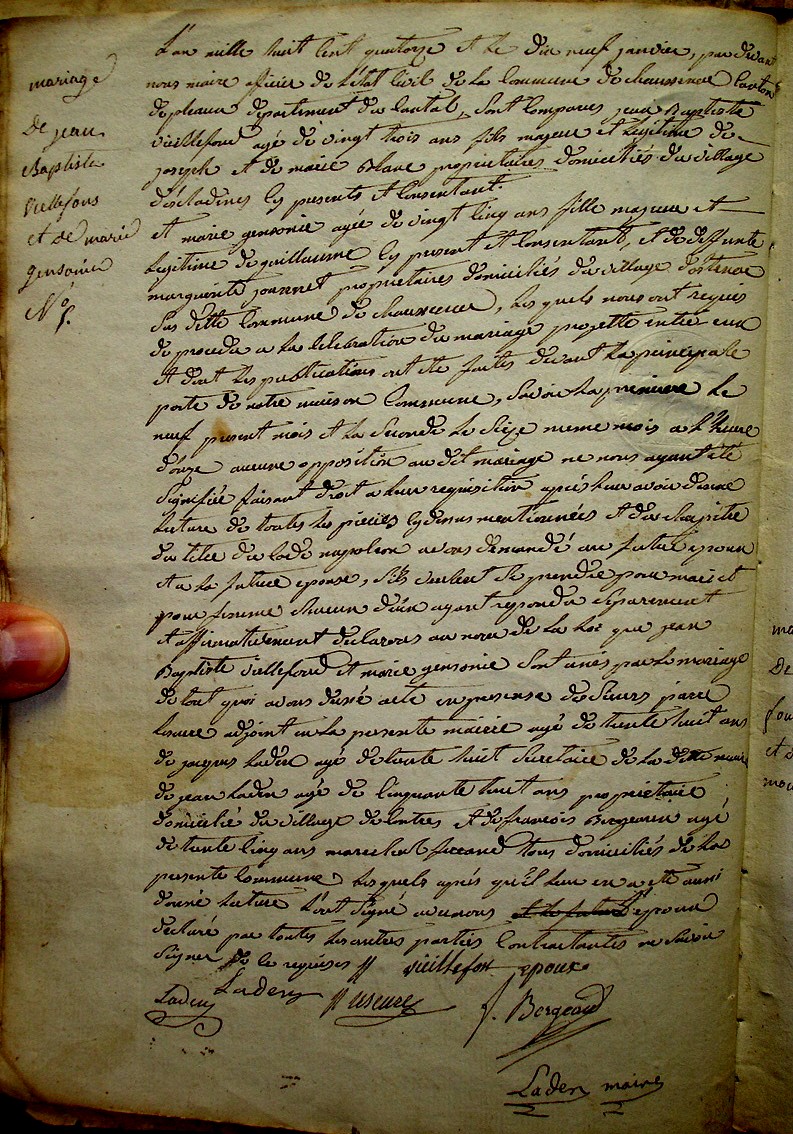 mariage
De jean
Baptiste
Vieillefons
et de marie
gensonie
N° 5.
L'an mille huit Cent quatorze et le dix neuf janvier, par devant
nous maire officier de L'état Civil de La Commune de chaussenac Canton
de pleaux département du Cantal, Sont Comparus jean Baptiste
vieillefond agé de vingt trois ans fils majeur et Legitime de
joseph et de marie Blanc propriétaires domiciliés du village
d'éscladines Cy presents et Consentant.
et marie gensonie agée de vingt Cinq ans fille majeure et
Legitime de guillaume Cy present et Consentant, et de deffunte
marguerite jonnret propriétaires domiciliés du village d'ostenac
Sus ditte Commune de chaussenac, Les quels nous ont requis
de proceder a La Celebration du mariage projetté entre eux
et dont Les publications ont été faites devant La principale
porte de notre maison Commune, Savoir La premiere Le
neuf present mois et La Seconde Le Seize meme mois a L'heure
d'onze aucune opposition au dit mariage ne nous ayant été
Signifiée faisant droit a Leur requisition apres Leur avoir donné
Lecture de toutes Les pieces Cy dessus mentionnées et du chapitre
du titre du Code napoléon avons demandé au futur epoux
et a La future epouse, S'ils veulent Se prendre pour mari et
pour femme chacun d'eux ayant repondu Separement
et affirmativement declarons au nom de La Loi que jean
Baptiste vieillefond et marie gensonie Sont unis par Le mariage
de tout quoi avons dressé acte en presense des Sieurs pierre
Lineure adjoint en La presente mairie agé de trente huit ans
de jacques Laden agé de trente huit Secretaire de La ditte mairie
de jean Laden agé de Cinquante huit ans propriétaire
domicilié du village de Contres et de francois Bergeaud agé
de trente Cinq ans marechal ferrand tous domiciliés de La
presente Commune, Lesquels après qu'il Leur en a été aussi
donné Lecture L'ont Signé avec nous et l'epoux
declaré par toutes Les autres parties Contractantes ne Savoir
Signer de Ce requises // vieillefon epoux
Laden Laden useure J. Bergeaud
Laden maire